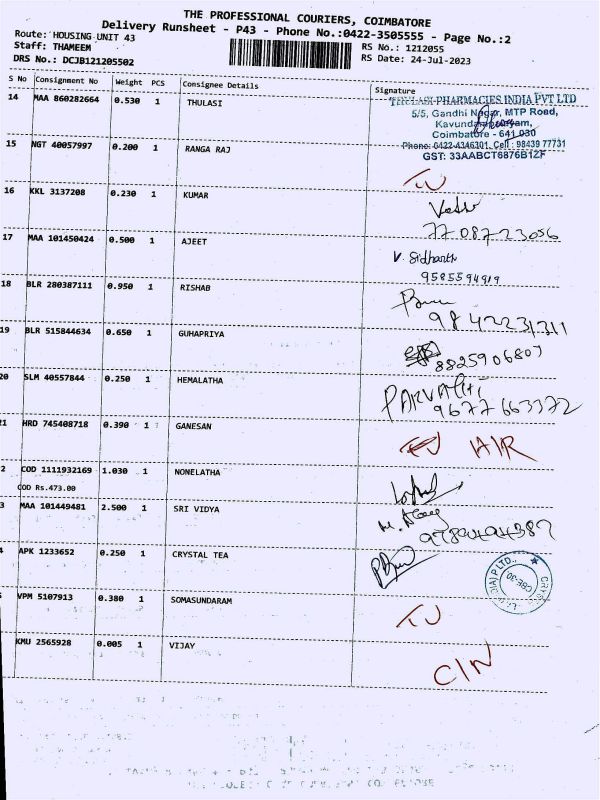 THE PROFESSIONAL COURIERS, COIMBATORE
Delivery Runsheet - P43 - Phone No.:0422-3505555 - Page No.:2
Route: HOUSING UNIT 43
Staff: THAMEEM
DRS No.: DCJB121205502
RS No.: 1212055
RS Date: 24-Jul-2023
S No Consignment No Weight PCS Consignee Details Signature
14 MAA 860282664 0.530 1 THULASI
THULASI PHARMACIES INDIA PVT LTD
5/5, Gandhi Nagar, MTP Road,
Kavundampalayam,
Coimbatore - 641 030
Phone: 0422-4346301, Cell : 98439 77731
GST: 33AABCT6876B1ZF
15 NGT 40057997 0.200 1 RANGA RAJ
16 KKL 3137208 0.230 1 KUMAR
7708723056
17 MAA 101450424 0.500 1 AJEET V. Sidhanth
9585594919
18 BLR 280387111 0.950 1 RISHAB
9842231311
19 BLR 515844634 0.650 1 GUHAPRIYA
8825906807
20 SLM 40557844 0.250 1 HEMALATHA PARVATHI
9677663372
21 HRD 745408718 0.390 1 GANESAN
2 COD 1111932169 1.030 1 NONELATHA
COD Rs.473.00
3 MAA 101449481 2.500 1 SRI VIDYA
4 APK 1233652 0.250 1 CRYSTAL TEA
VPM 5107913 0.380 1 SOMASUNDARAM
KMU 2565928 0.005 1 VIJAY
CIN